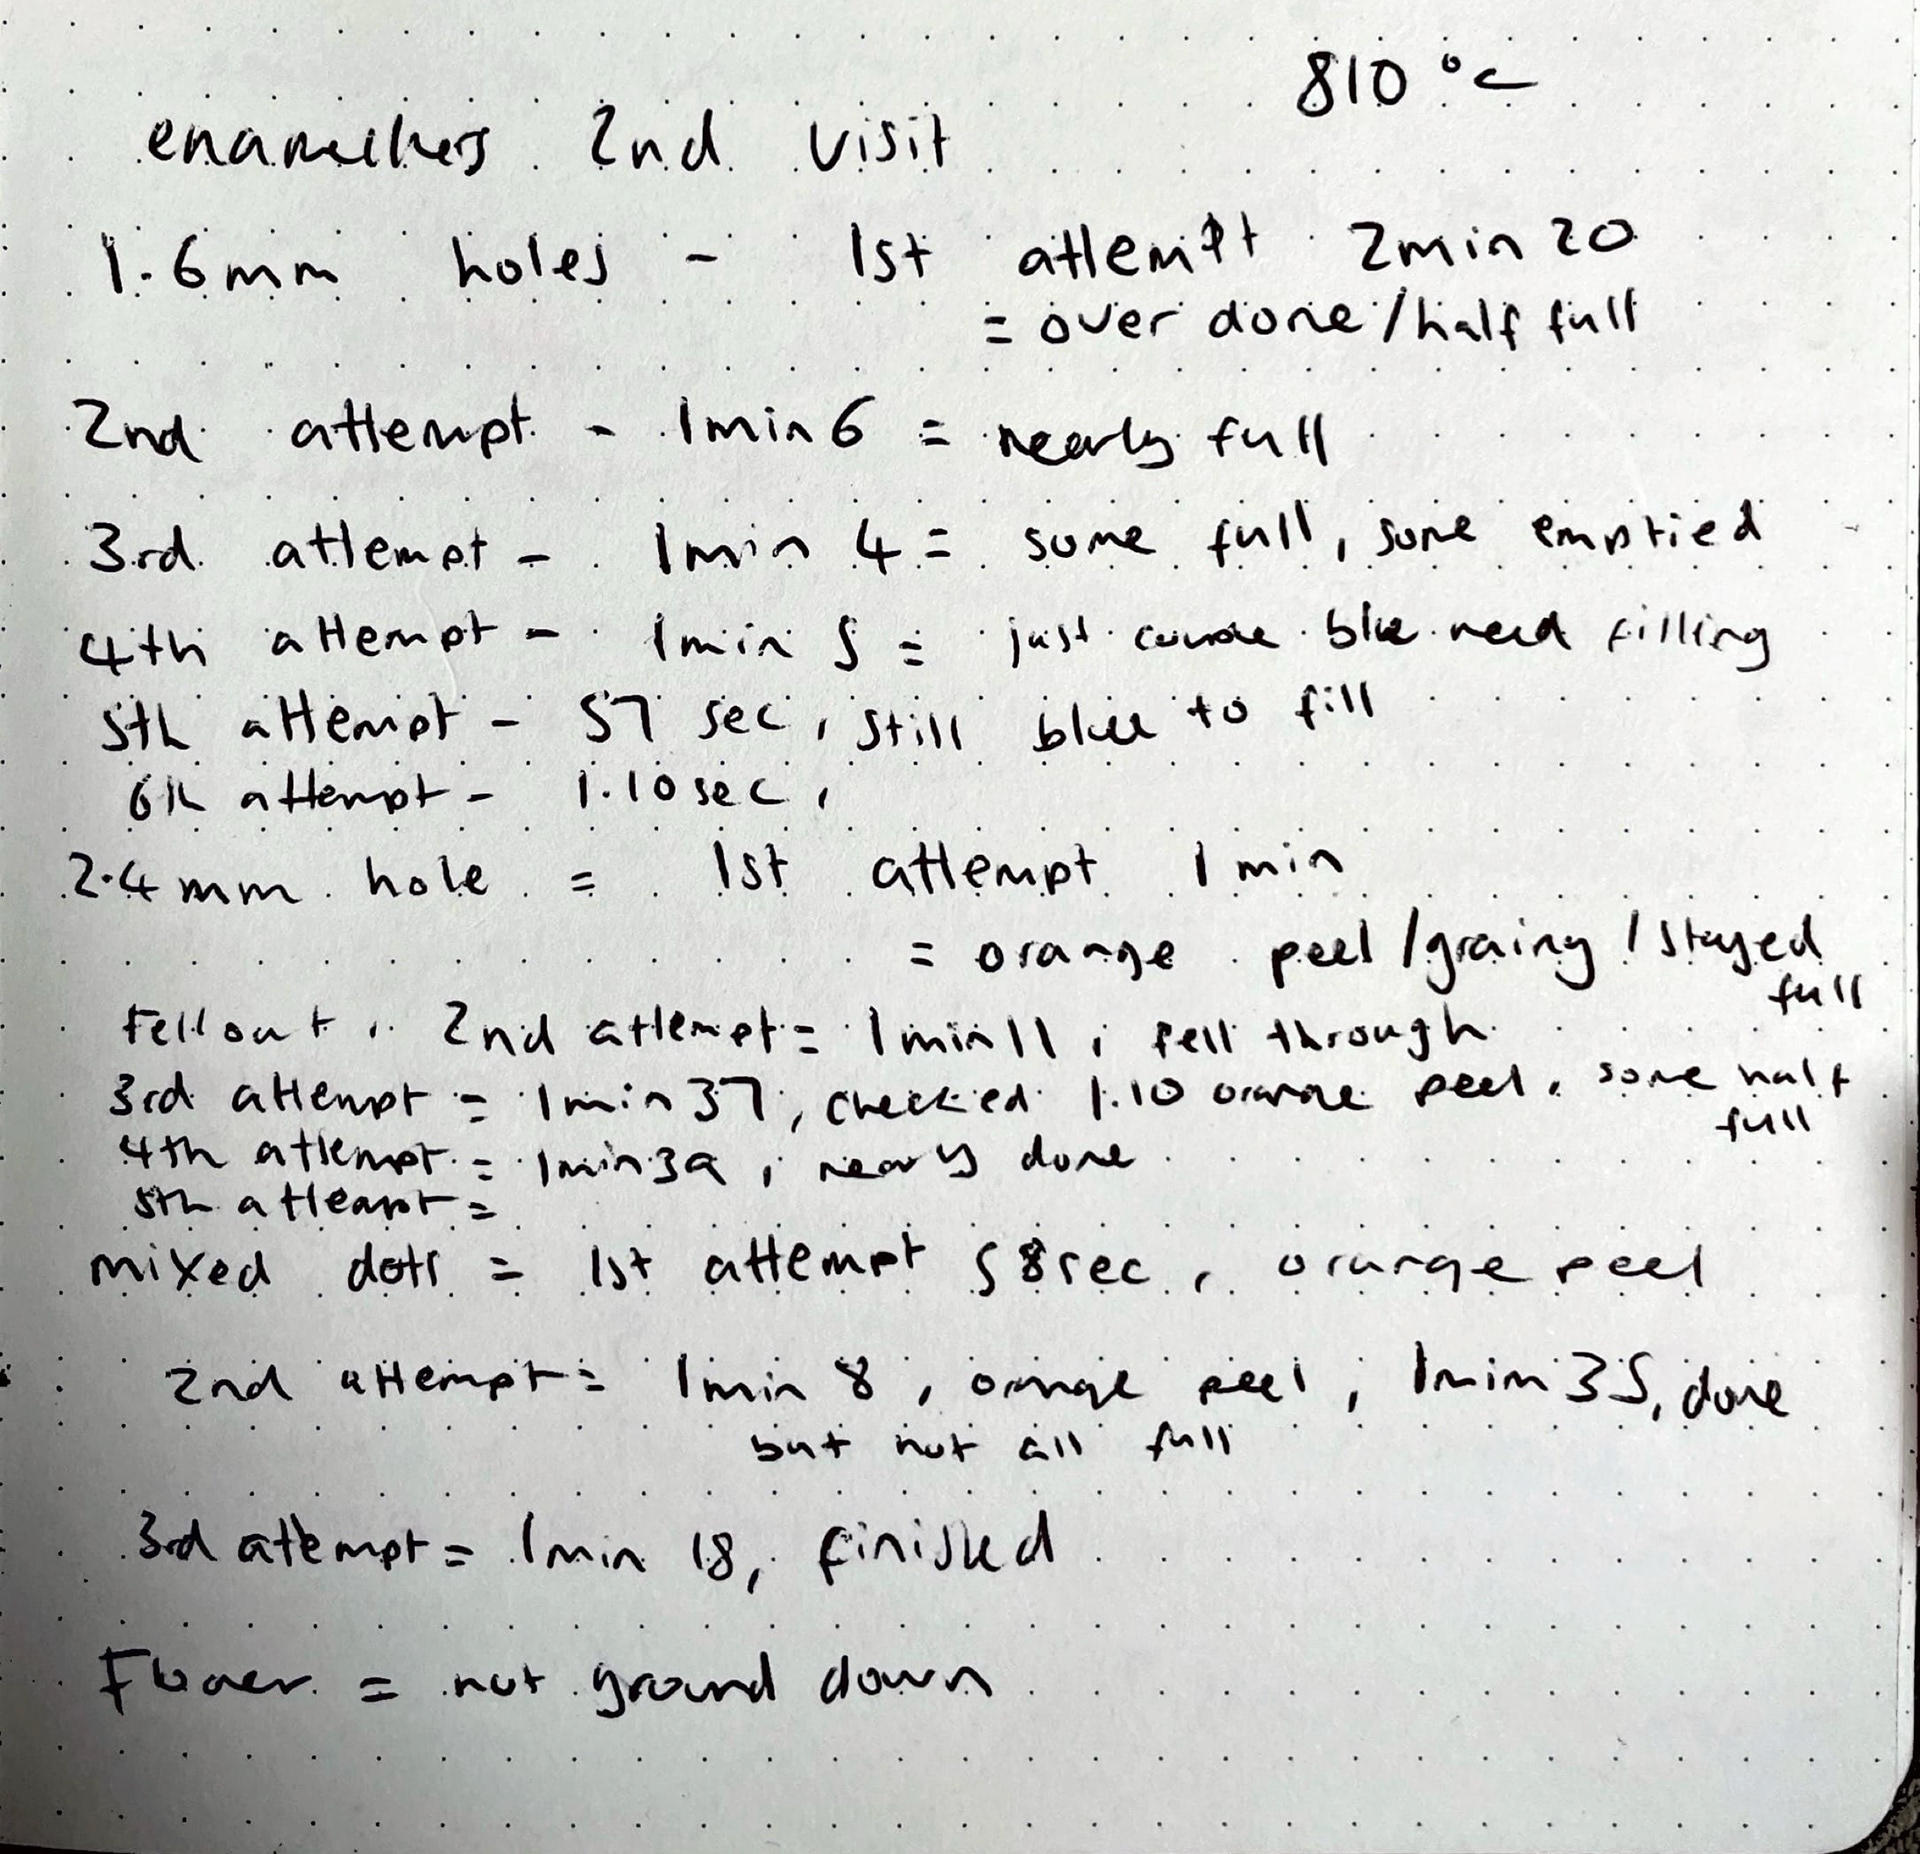 810 °C
enamellers 2nd visit
1.6mm holes - 1st attempt 2min 20
= over done / half full
2nd attempt - 1min 6 = nearly full
3rd attempt - 1min 4 = some full, some emptied
4th attempt - 1min 5 = just blue need filling
5th attempt - 57 sec, still blue to fill
6th attempt - 1.10 sec,
2.4mm hole = 1st attempt 1 min
= orange peel / grainy / stayed
full
Fell out, 2nd attempt = 1min 11, fell through
3rd attempt = 1min 37, checked 1.10 orange peel, some half
full
4th attempt = 1min 39, nearly done
5th attempt =
mixed dots = 1st attempt 58sec, orange peel
2nd attempt = 1min 8, orange peel, 1min 35, done
but not all full
3rd attempt = 1min 18, finished
Flower = not ground down